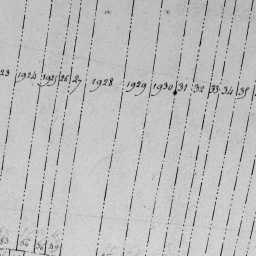 23 1924 1925 26 27 1928 1929 1930 31 32 33 34 35